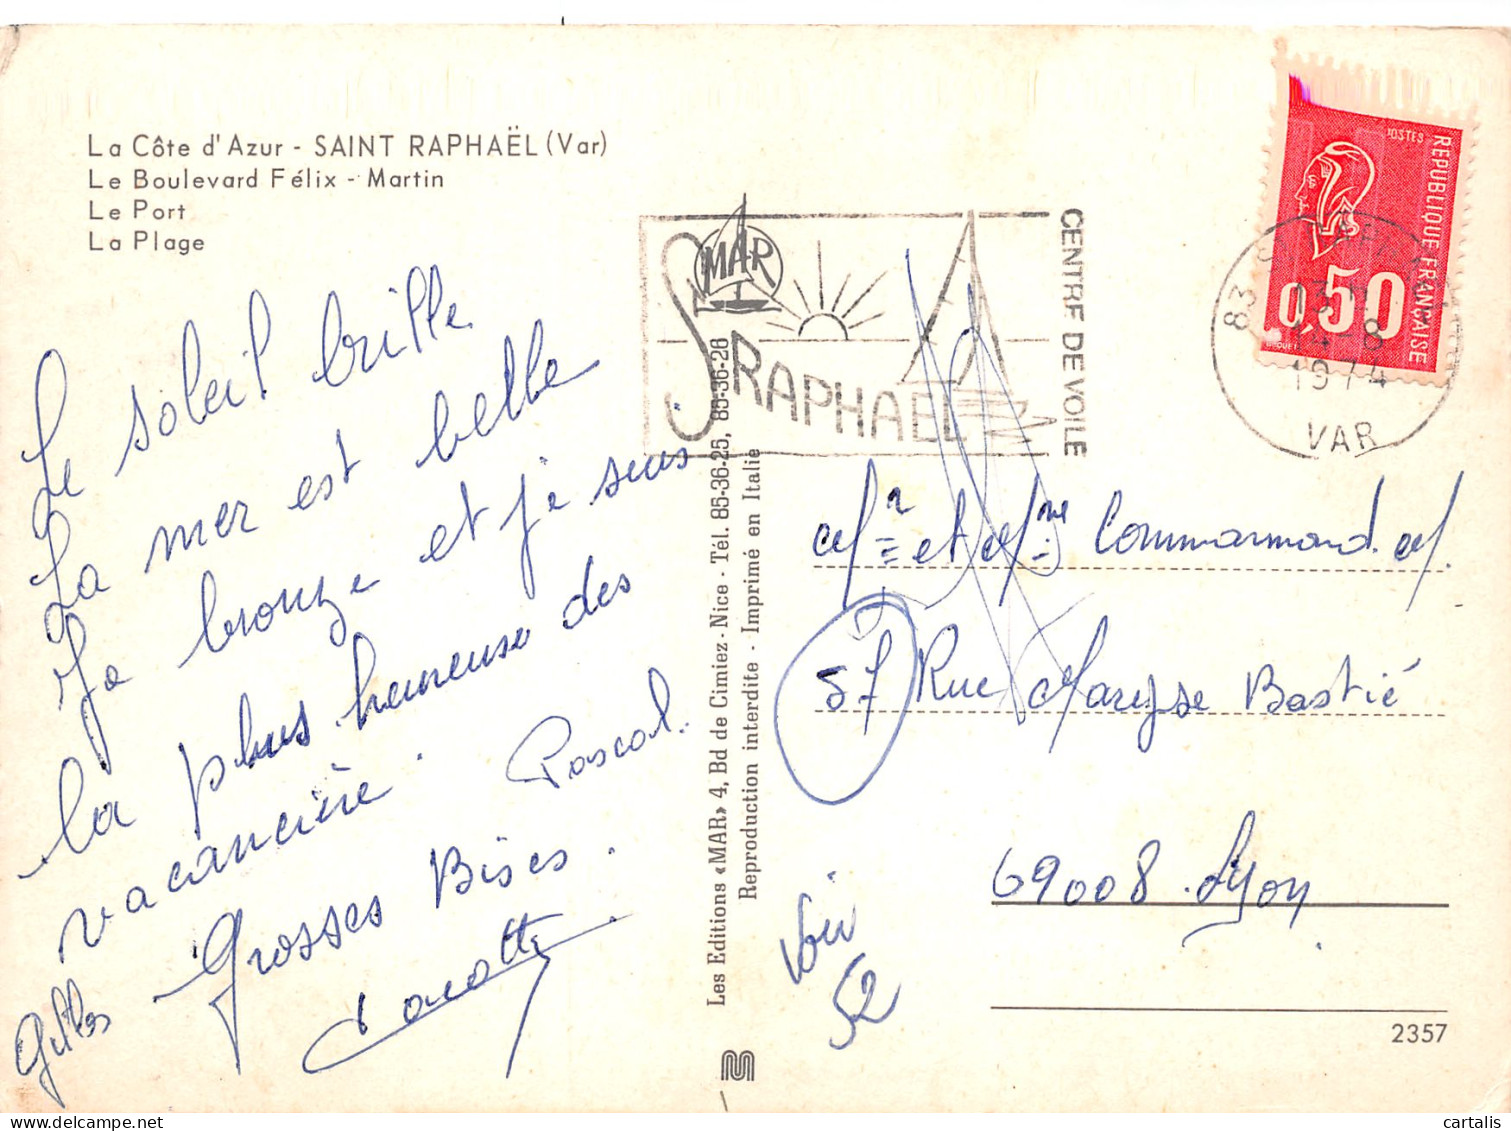 La Côte d'Azur - SAINT RAPHAËL (Var)
Le Boulevard Félix - Martin
Le Port
La Plage
Le soleil brille
La mer est belle
Je bronze et je suis
la plus heureuse des
vacancière.
Pascal.
Grosses Bises.
Gilles
Les Editions «MAR» 4, Bd de Cimiez - Nice - Tél. 85-36-25, 85-36-26
Reproduction interdite - Imprimé en Italie
MAR
ST RAPHAEL
CENTRE DE VOILE
POSTES
REPUBLIQUE FRANÇAISE
0,50
83
13 H
14-8
1974
VAR
Mr et Mme Commarmond. M
57 Rue Maryse Bastié
69008. Lyon
Voir
52
2357
cartalis